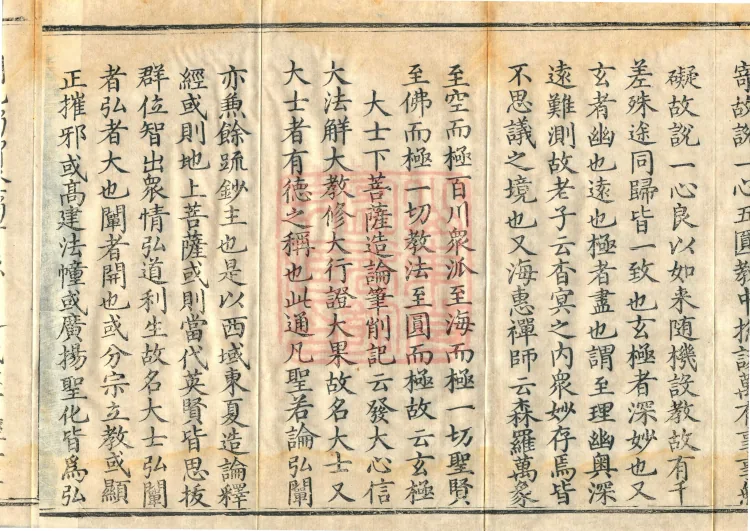 寄故說一心五圓教中
礙故說一心良以如来随機設教故有千
差殊途同歸皆一致也玄極者深妙也又
玄者幽也遠也極者盡也謂至理幽奥深
遠難測故老子云杳冥之内衆妙存焉皆
不思議之境也又海惠禪師云森羅萬象
至空而極百川衆派至海而極一切聖賢
至佛而極一切教法至圓而極故云玄極
大士下菩薩造論筆削記云發大心信
大法解大教修大行證大果故名大士又
大士者有德之稱也此通凡聖若論弘闡
亦兼餘䟽鈔主也是以西域東夏造論釋
經或則地上菩薩或則當代英賢皆思拔
群位智出衆情弘道利生故名大士弘闡
者弘者大也闡者開也或分宗立教或顯
正摧邪或髙建法幢或廣揚聖化皆爲弘